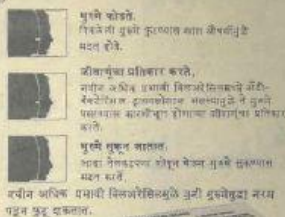 मुरुमे फोडते.
पिकलेली मुरुमे फुटण्यास खास औषधींमुळे
मदत होते.
जीवाणूंचा प्रतिकार करते.
नवीन अधिक प्रभावी क्लिअरेसिलमध्ये अँटी-
बॅक्टेरियल ट्रायक्लोसान असल्यामुळे ते मुरुमे
पसरण्यास कारणीभूत होणाऱ्या जीवाणूंचा प्रतिकार
करते.
मुरुमे सुकून जातात.
जादा तेलकटपणा शोषून घेऊन मुरुमे सुकण्यास
मदत करते.
नवीन अधिक प्रभावी क्लिअरेसिलमुळे जुनी मुरुमेसुद्धा नरम
पडून फुटू शकतात.